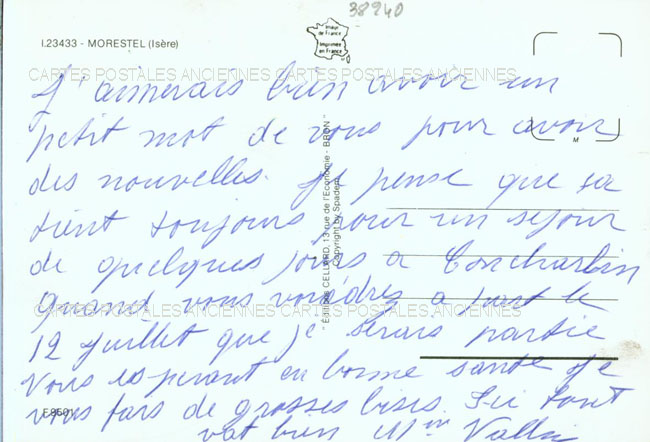 38940
I.23433 - MORESTEL (Isère)
Image de France
Imprimée en France
CARTES POSTALES ANCIENNES CARTES POSTALES ANCIENNES
J'aimerais bien avoir un
petit mot de vous pour avoir
des nouvelles. Je pense que sa
tient toujours pour un séjour
de quelques jours a Concharbin
quand vous voudrez a part le
12 juillet que je serais partie
Vous esperant en bonne santé je
vous fais de grosses bises. Ici tout
vat bien Mme
Editions CELLARD, 13 rue de l'Economie - BRON
Copyright by Spadem
M
CARTES POSTALES ANCIENNES CARTES POSTALES ANCIENNES